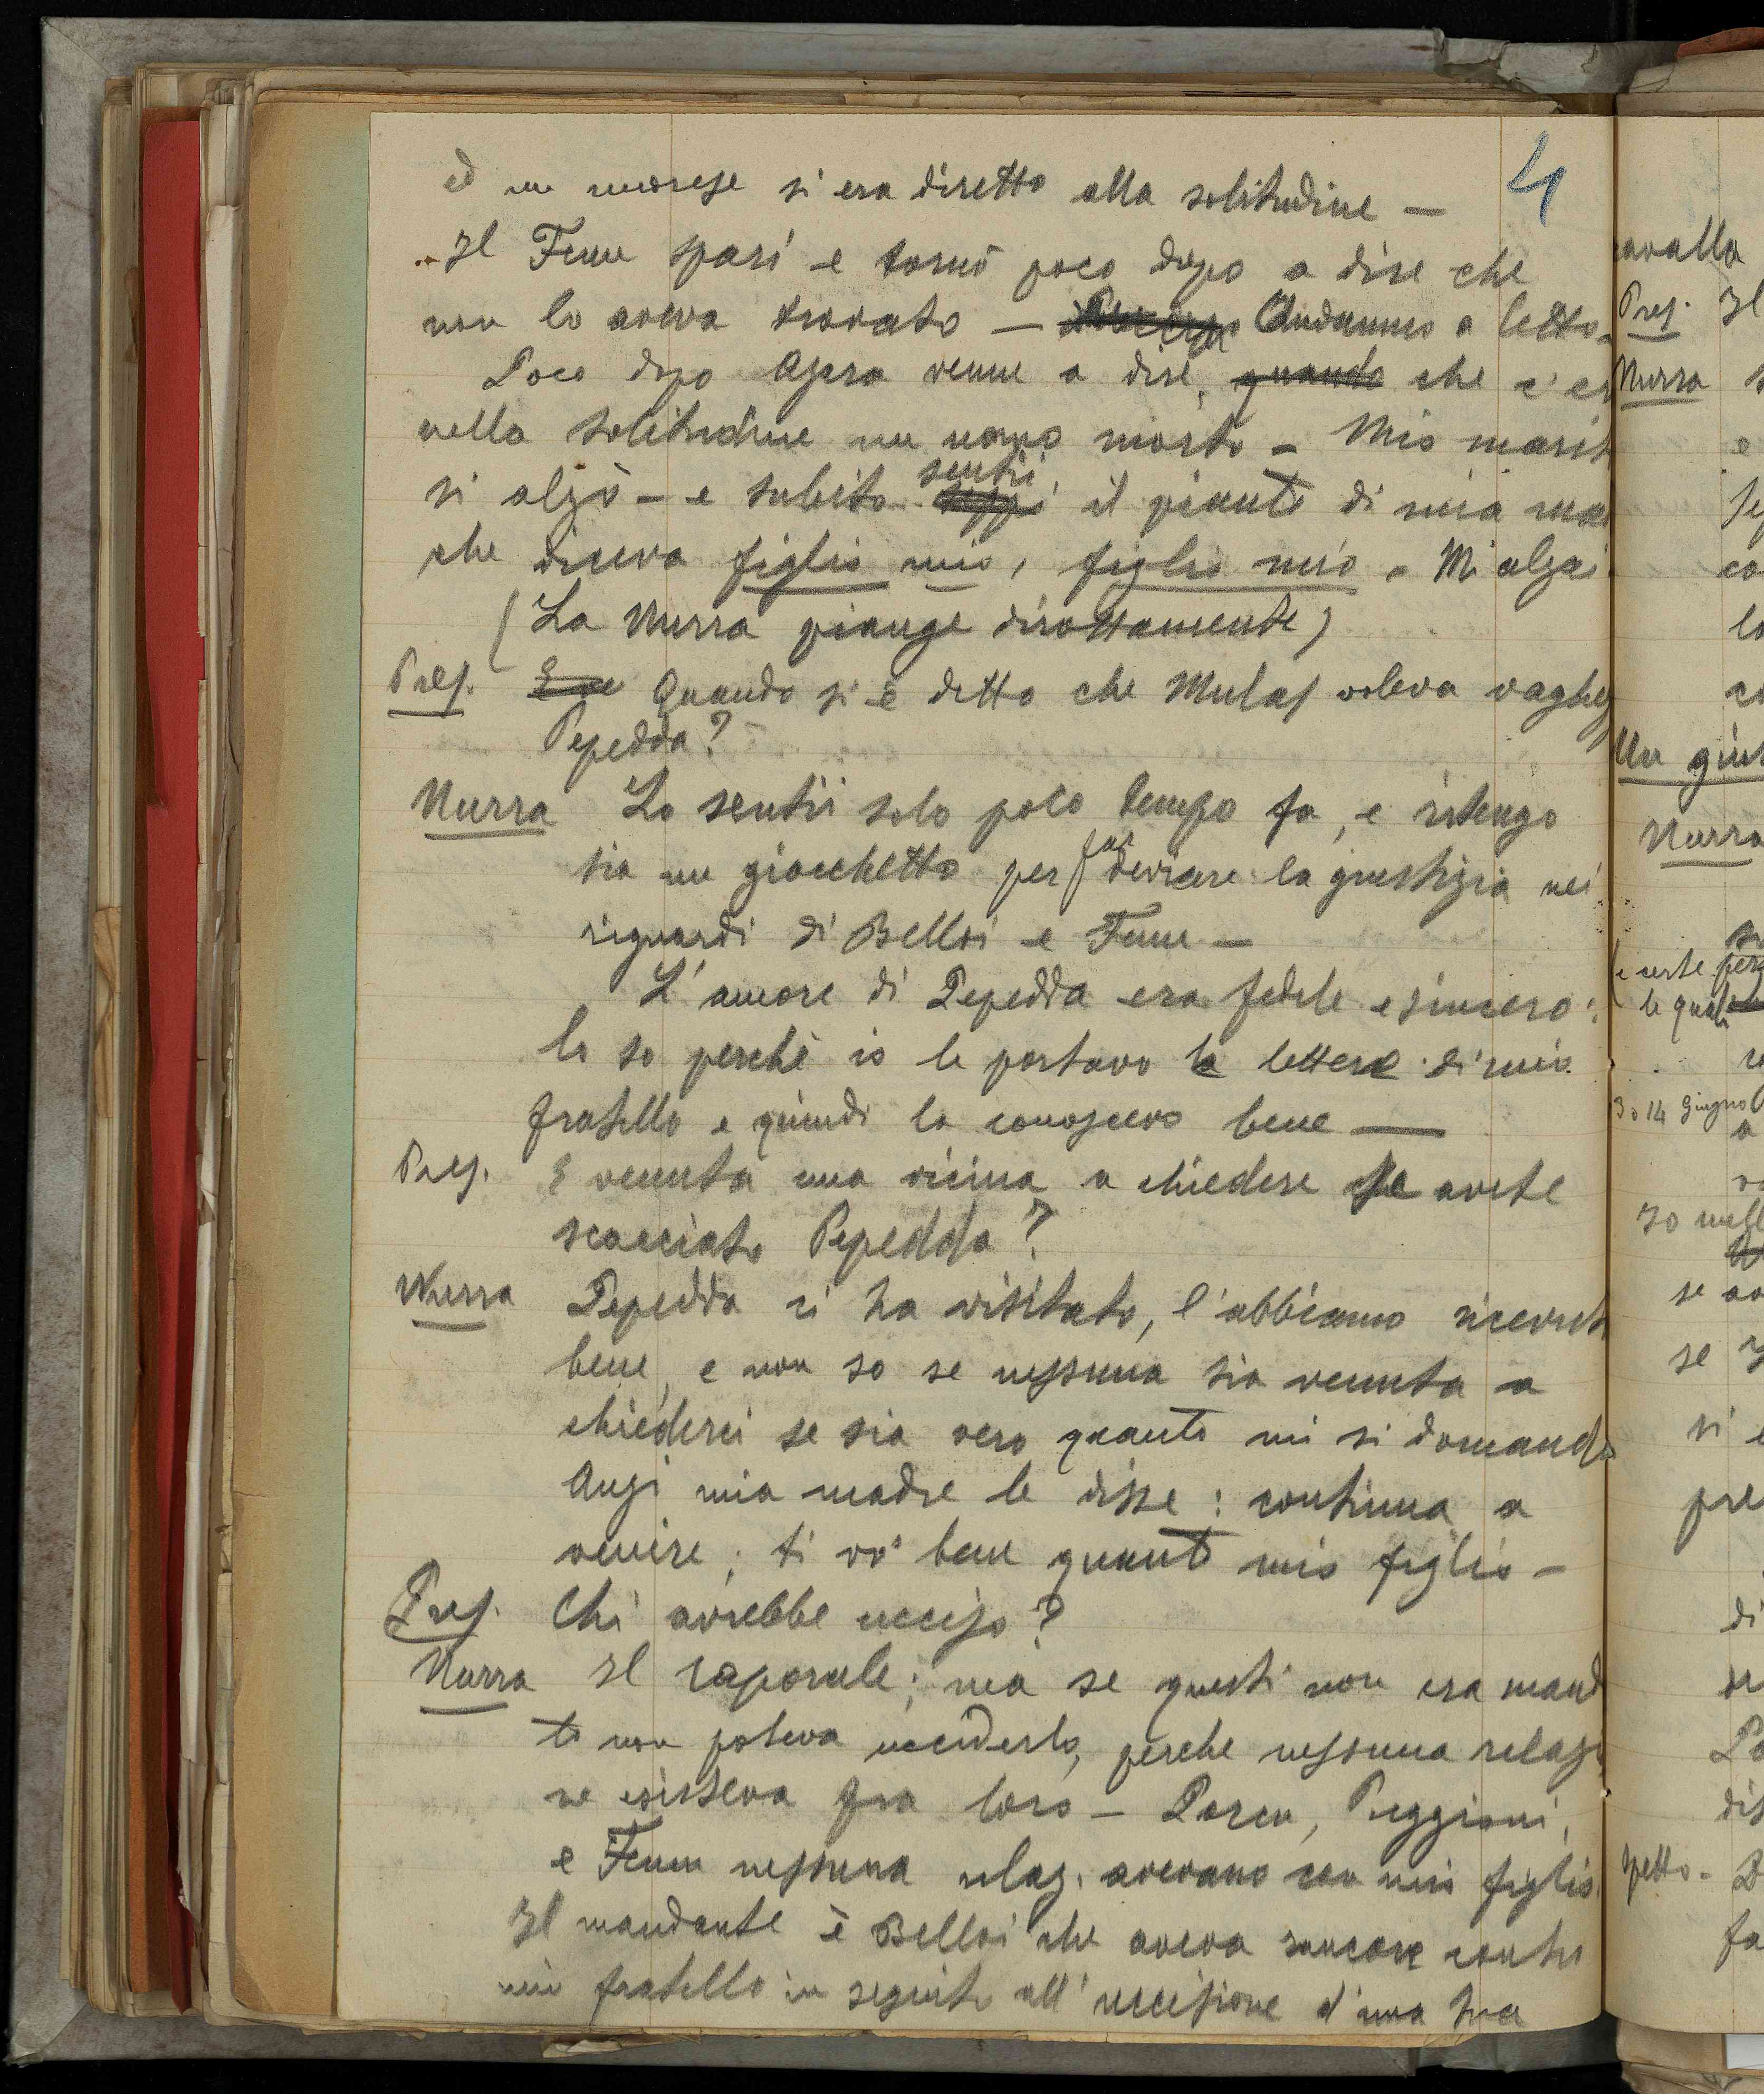 4
ed un nuorese si era diretto alla solitudine —
Il Fenu sparì e tornò poco dopo a dire che
non lo aveva trovato — Andammo a letto —
Poco dopo venne a dire, quando che c'er
nella solitudine un uomo morto — Mio marit
si alzò — e subito sentii il pianto di mia ma
che diceva figlio mio, figlio mio. Mi alzai
(La Murra piange dirottamente)
Pres. Quando si è detto che Mulas voleva vaghegg
Pepedda?
Murra Lo sentii solo poco tempo fa, e ritengo
sia un giochetto per far deviare la giustizia nei
riguardi di Belloi e Fenu —
L'amore di Pepedda era fedele e sincero:
lo so perchè io le portavo le lettere di mio
fratello e quindi la conoscevo bene —
Pres. E venuta una vicina a chiedere se avete
scacciato Pepedda?
Murra Pepedda ci ha visitato, l'abbiamo ricevut
bene, e non so se nessuna sia venuta a
chiederci se sia vero quanto mi si domanda
Anzi mia madre le disse: continua a
venire; ti vo' bene quanto mio figlio —
Pres. Chi avrebbe ucciso?
Murra Il caporale; ma se questi non era manda
to non poteva ucciderlo, perche nessuna relazi
ne esisteva fra loro — Porcu, Puggioni,
e Fenu nessuna relaz. avevano con mio figlio.
Il mandante è Belloi che aveva rancore contro
mio fratello in seguito all'uccisione d'una sua
cavalla
Pres. Il
Murra
Un giu
Murra
e certe per
le quali
3 o 14 Giugno
se
si
pre
di
petto —
fa